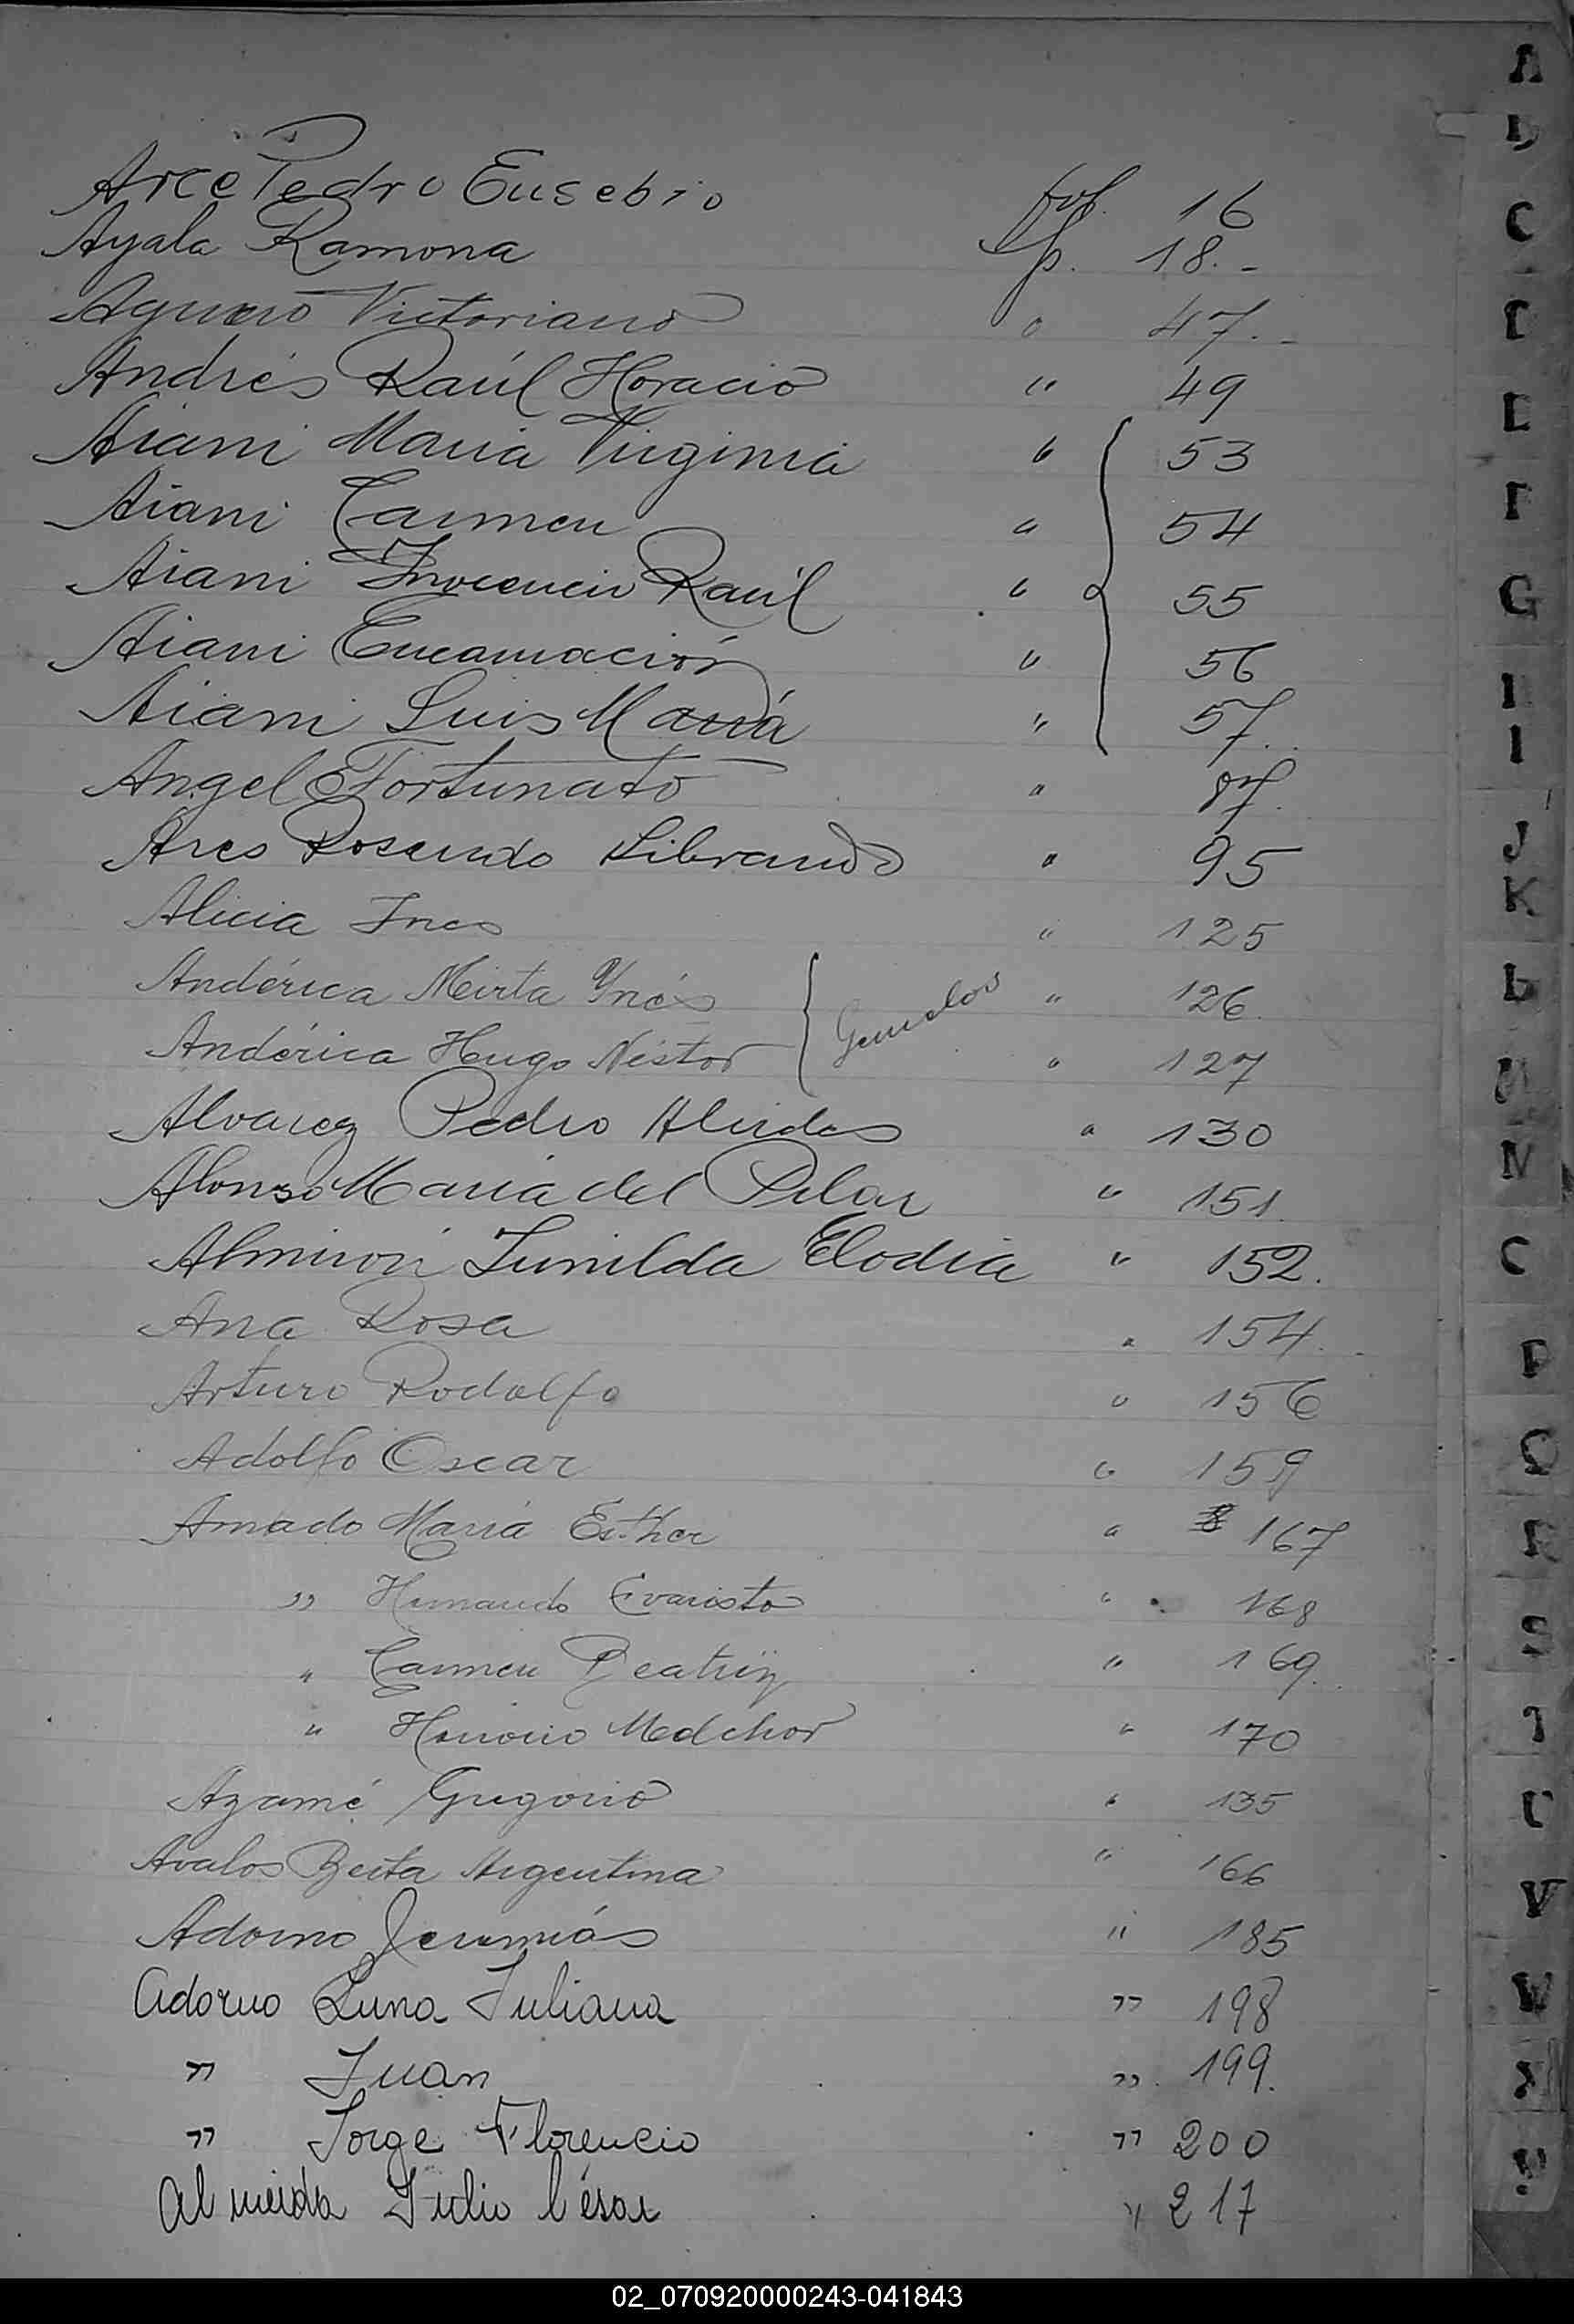 Arce Pedro Eusebio fol. 16
Ayala Ramona fs. 18.-
Aguero Victoriano " 47.-
Andrés Raúl Horacio " 49
Aiani Maria Virginia " 53
Aiani Carmen " 54
Aiani Inocencio Raúl " 55
Aiani Encarnación " 56
Aiani Luis María " 57.
Angel Fortunato " 87.
Ares Rosendo Librando " 95
Alicia Ines " 125
Andérica Mirta Ynés " 126.
Gemelos
Andérica Hugo Néstor " 127
Alvarez Pedro Alcides " 130
Alonso María del Pilar " 151.
Almirón Lunilda Elodia " 152.
Ana Rosa " 154.
Arturo Rodolfo " 156
Adolfo Oscar " 159
Amado María Esther " 167
" Hernando Evaristo " 168
" Carmen Beatriz " 169.
" Honorio Melchor " 170
Azamé Gregorio " 135
Avalos Berta Argentina " 166
Adorno Jeremiás " 185
Adorno Luna Juliana " 198
" Juan " 199.
" Jorge Florencio " 200
Almeida Julio César " 217
A
B
C
D
E
F
G
H
I
J
K
L
M
N
O
P
Q
R
S
T
U
V
W
X
Y
02_070920000243-041843